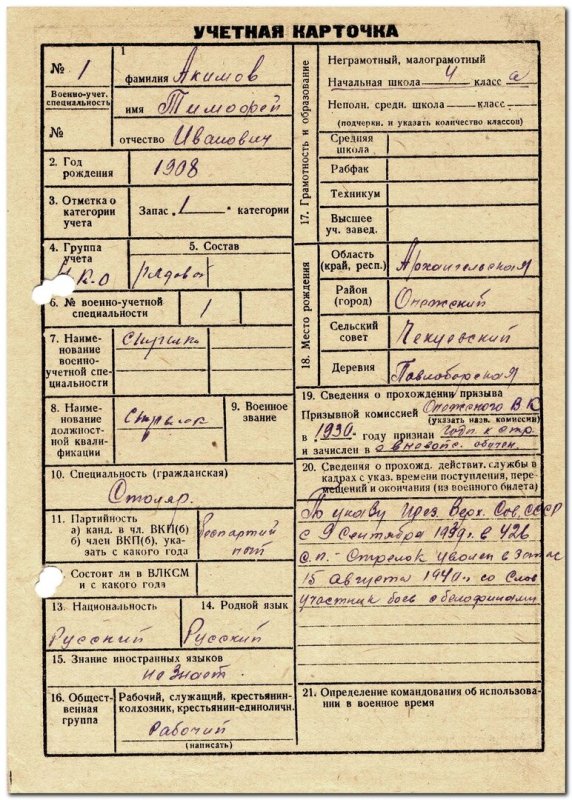 УЧЕТНАЯ КАРТОЧКА
№ 1
Военно-учет. специальность
№
1
фамилия Акимов
имя Тимофей
отчество Иванович
2. Год рождения 1908
3. Отметка о категории учета
Запас 1 категории
4. Группа учета
5. Состав рядовой
6. № военно-учетной специальности 1
7. Наименование военно-учетной специальности
8. Наименование должностной квалификации Стрелок
9. Военное звание
10. Специальность (гражданская)
Столяр.
11. Партийность
а) канд. в чл. ВКП(б)
б) член ВКП(б), указать с какого года
Беспартийный
Состоит ли в ВЛКСМ и с какого года
13. Национальность
Русский
14. Родной язык
Русский
15. Знание иностранных языков
не знает.
16. Общественная группа
Рабочий, служащий, крестьянин-
колхозник, крестьянин-единоличн.
Рабочий
(написать)
17. Грамотность и образование
Неграмотный, малограмотный
Начальная школа 4 класс а
Неполн. средн. школа класс
(подчерки. и указать количество классов)
Средняя школа
Рабфак
Техникум
Высшее уч. завед.
18. Место рождения
Область (край, респ.) Архангельская
Район (город) Онежский
Сельский совет
Деревня Павлоборская
19. Сведения о прохождении призыва
Призывной комиссией Онежского В.К
(указать назв. комиссии)
в 1930 году признан
и зачислен в
20. Сведения о прохожд. действит. службы в
кадрах с указ. времени поступления, пере-
мещения и окончания (из военного билета)
По указу През. Верх. Сов. СССР
с 9 Сентября 1939 г. в 426
с.п. - Стрелок уволен в запас
15 августа 1940 г. со слов
участник боев с белофинами
21. Определение командования об использова-
нии в военное время